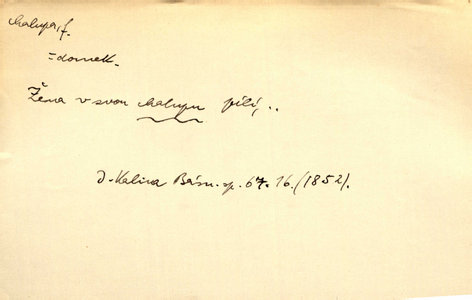 chalupa, f.
= domek.
Žena v svou chalupu pílí, ..
J. Kalina Básn. sp. 67. 16. (1852).